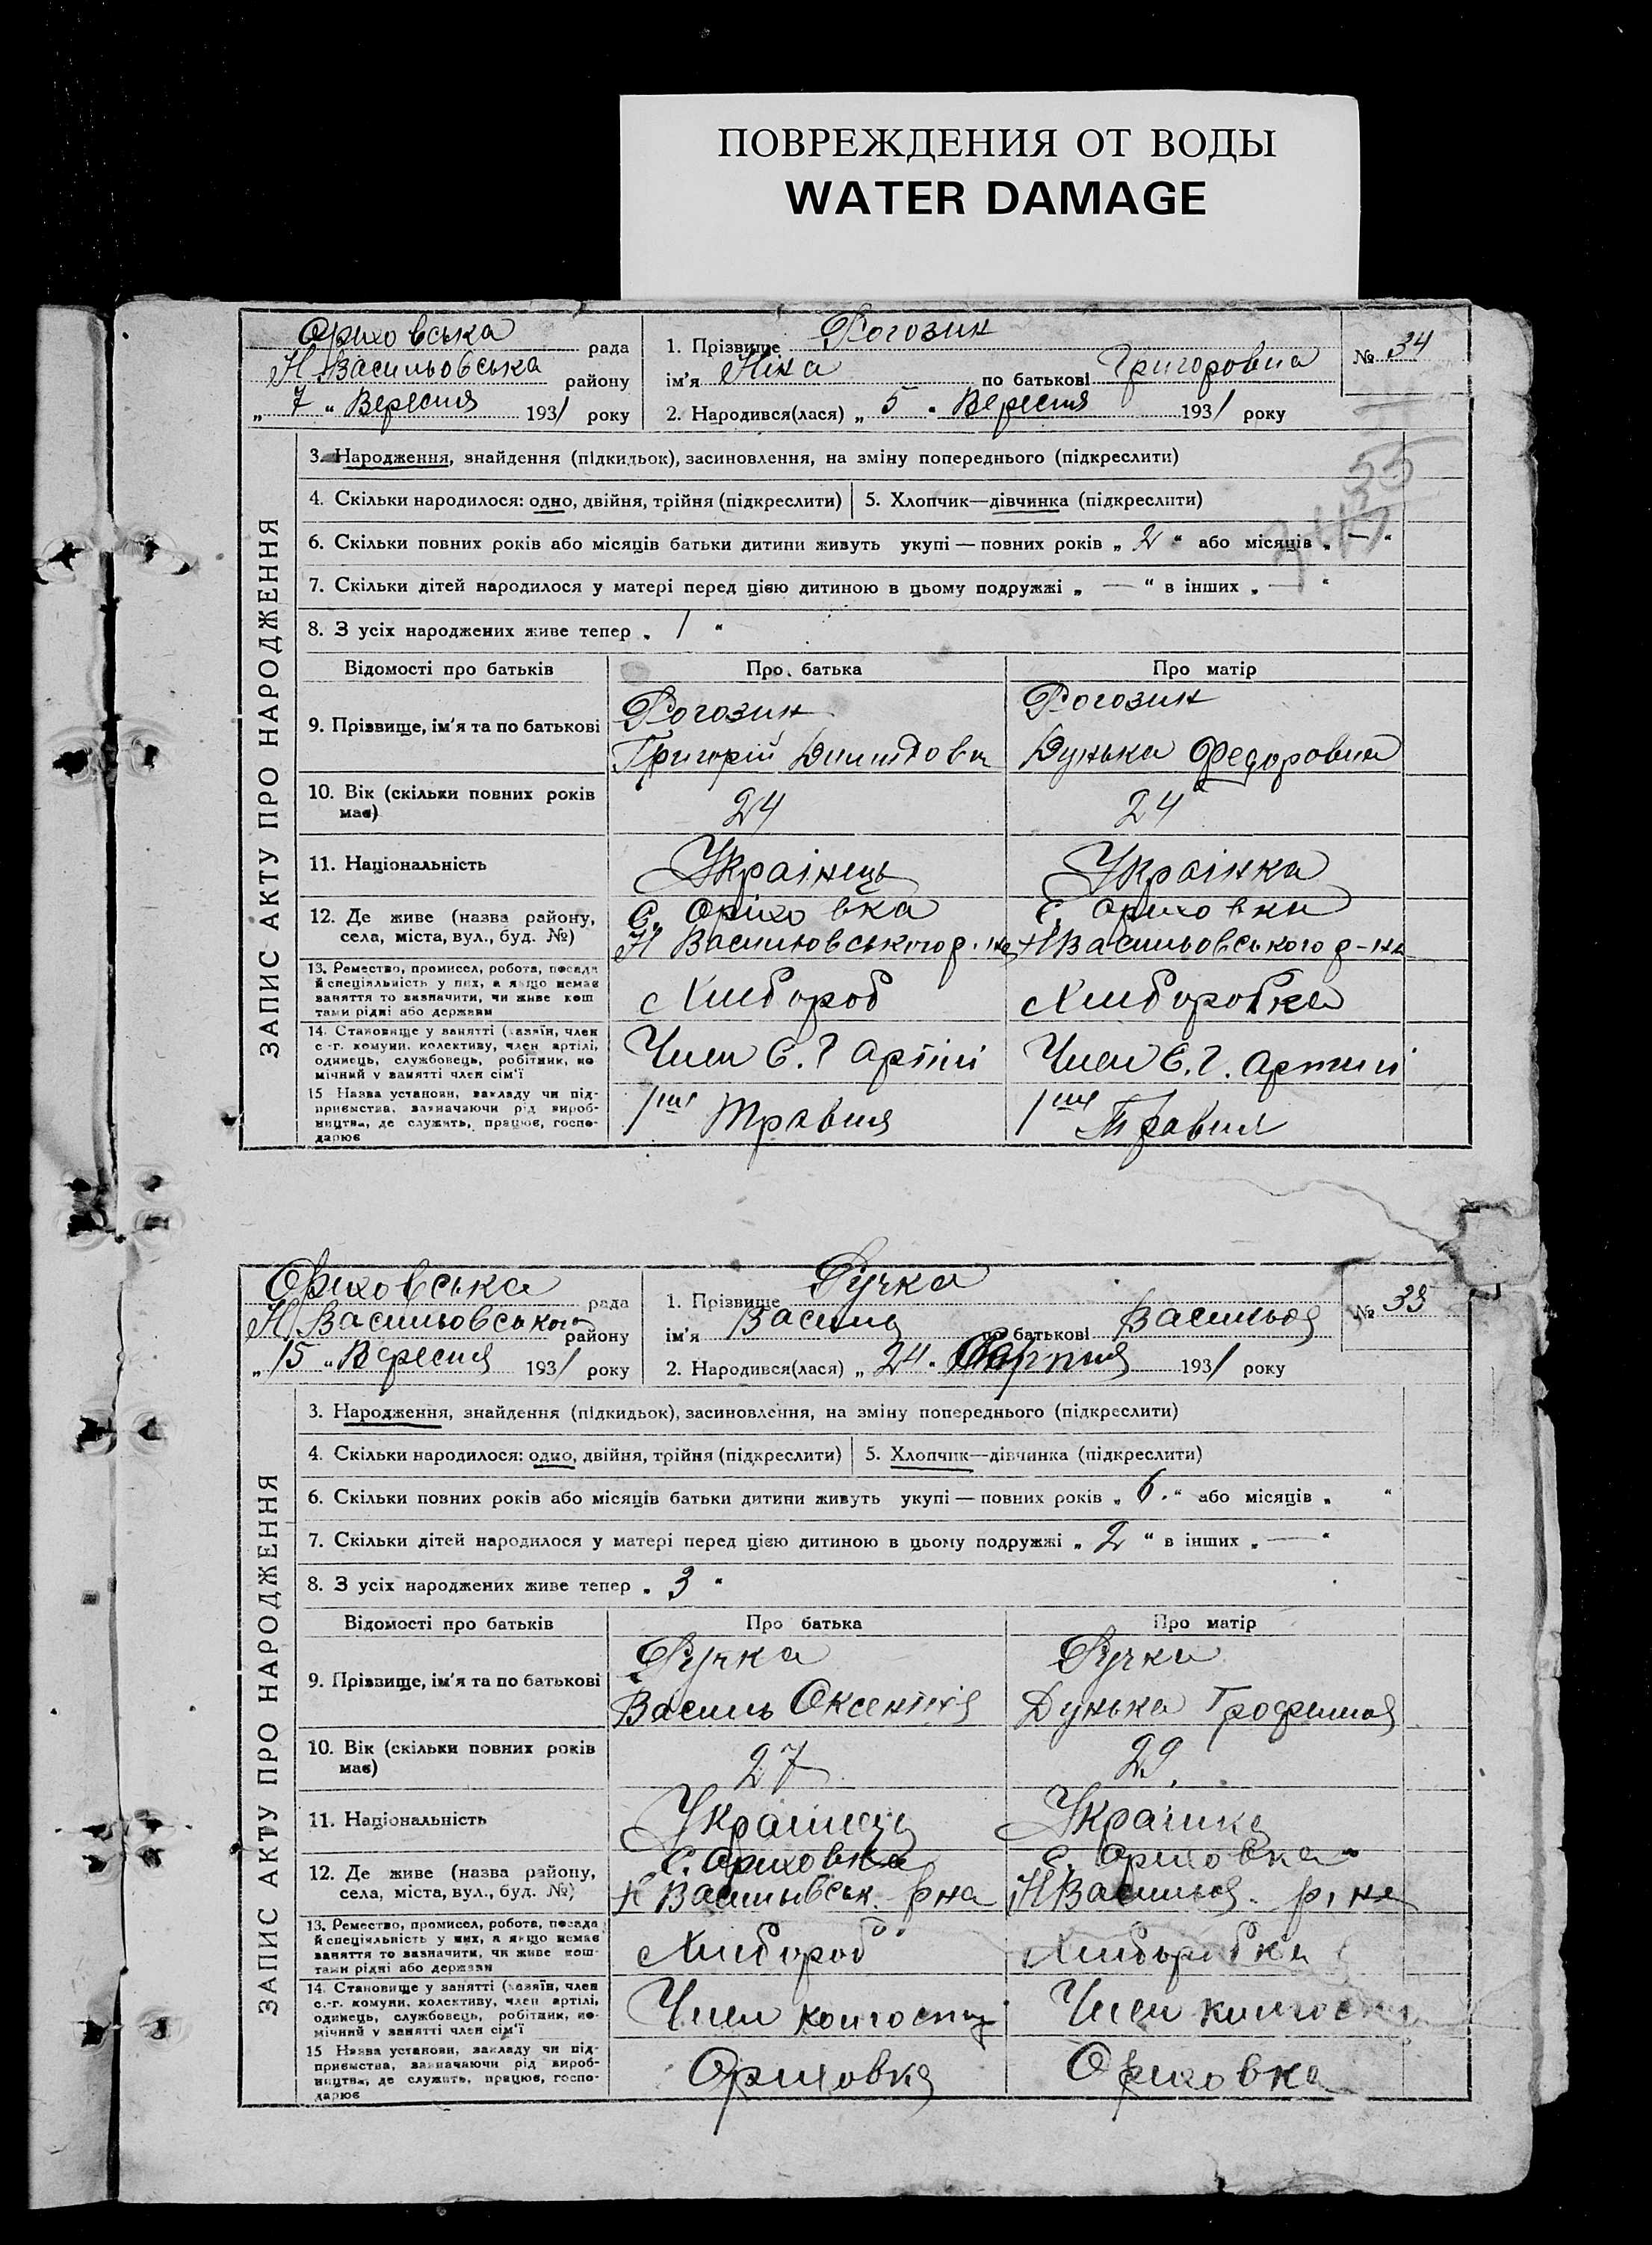 ПОВРЕЖДЕНИЯ ОТ ВОДЫ
WATER DAMAGE
Оріховська рада
Н Васильовська району
„ 7 “ Вересня 1931 року
1. Прізвище Рогозин
ім'я Ніна по батькові Григоровна
2. Народився(лася) „ 5 “ Вересня 1931 року
№ 34
55
ЗАПИС АКТУ ПРО НАРОДЖЕННЯ
3. Народження, знайдення (підкидьок), засиновлення, на зміну попереднього (підкреслити)
4. Скільки народилося: одно, двійня, трійня (підкреслити) 5. Хлопчик—дівчинка (підкреслити)
6. Скільки повних років або місяців батьки дитини живуть укупі — повних років „ 2 “ або місяців „ — “
7. Скільки дітей народилося у матері перед цією дитиною в цьому подружжі „ — “ в інших „ — “
8. З усіх народжених живе тепер „ 1 “
Відомості про батьків Про батька Про матір
9. Прізвище, ім'я та по батькові
Рогозин
Григорій
Рогозин
Дунька Федоровна
10. Вік (скільки повних років має) 24 24
11. Національність Українець Українка
12. Де живе (назва району, села, міста, вул., буд. №)
С. Оріховка
Н Васильовського р-на
С. Оріховка
Н Васильовського р-на
13. Ремество, промисел, робота, посада
й спеціяльність у них, а якщо немає
заняття то зазначити, чи живе кош
тами рідні або держави
Хлібороб Хліборобка
14. Становище у занятті (хазяїн, член
с.-г. комуни, колективу, член артілі,
одинець, службовець, робітник, по
мічний у занятті член сім'ї
Член С. Г Артілі Член С. Г. Артилі
15 Назва установи, закладу чи під-
приємства, зазначаючи рід вироб-
ництва, де служить, працює, госпо-
дарює
1ше Травня 1ше Травня
Оріховська рада
Н Васильовського району
„ 15 “ Вересня 1931 року
1. Прізвище Ручка
ім'я Василь по батькові Васильов
2. Народився(лася) „ 24 “ Серпня 1931 року
№ 35
ЗАПИС АКТУ ПРО НАРОДЖЕННЯ
3. Народження, знайдення (підкидьок), засиновлення, на зміну попереднього (підкреслити)
4. Скільки народилося: одно, двійня, трійня (підкреслити) 5. Хлопчик—дівчинка (підкреслити)
6. Скільки повних років або місяців батьки дитини живуть укупі — повних років „ 6. “ або місяців „ “
7. Скільки дітей народилося у матері перед цією дитиною в цьому подружжі „ 2 “ в інших „ — “
8. З усіх народжених живе тепер „ 3 “
Відомості про батьків Про батька Про матір
9. Прізвище, ім'я та по батькові
Ручка
Василь
Ручка
Дунька Трофимов
10. Вік (скільки повних років має) 27 29.
11. Національність Українець Українка
12. Де живе (назва району, села, міста, вул., буд. №)
С. Оріховка
Н Васильвськ. р-на
С. Оріховка
Н Васильов. р. на
13. Ремество, промисел, робота, посада
й спеціяльність у них, а якщо немає
заняття то зазначити, чи живе кош-
тами рідні або держави
Хлібороб Хліборобка
14. Становище у занятті (хазяїн, член
с.-г. комуни, колективу, член артілі,
одинець, службовець, робітник, по-
мічний у занятті член сім'ї
Член колгоспу Член колгоспу
15 Назва установи, закладу чи під-
приємства, зазначаючи рід вироб-
ництва, де служить, працює, госпо-
дарює
Оріховка Оріховка